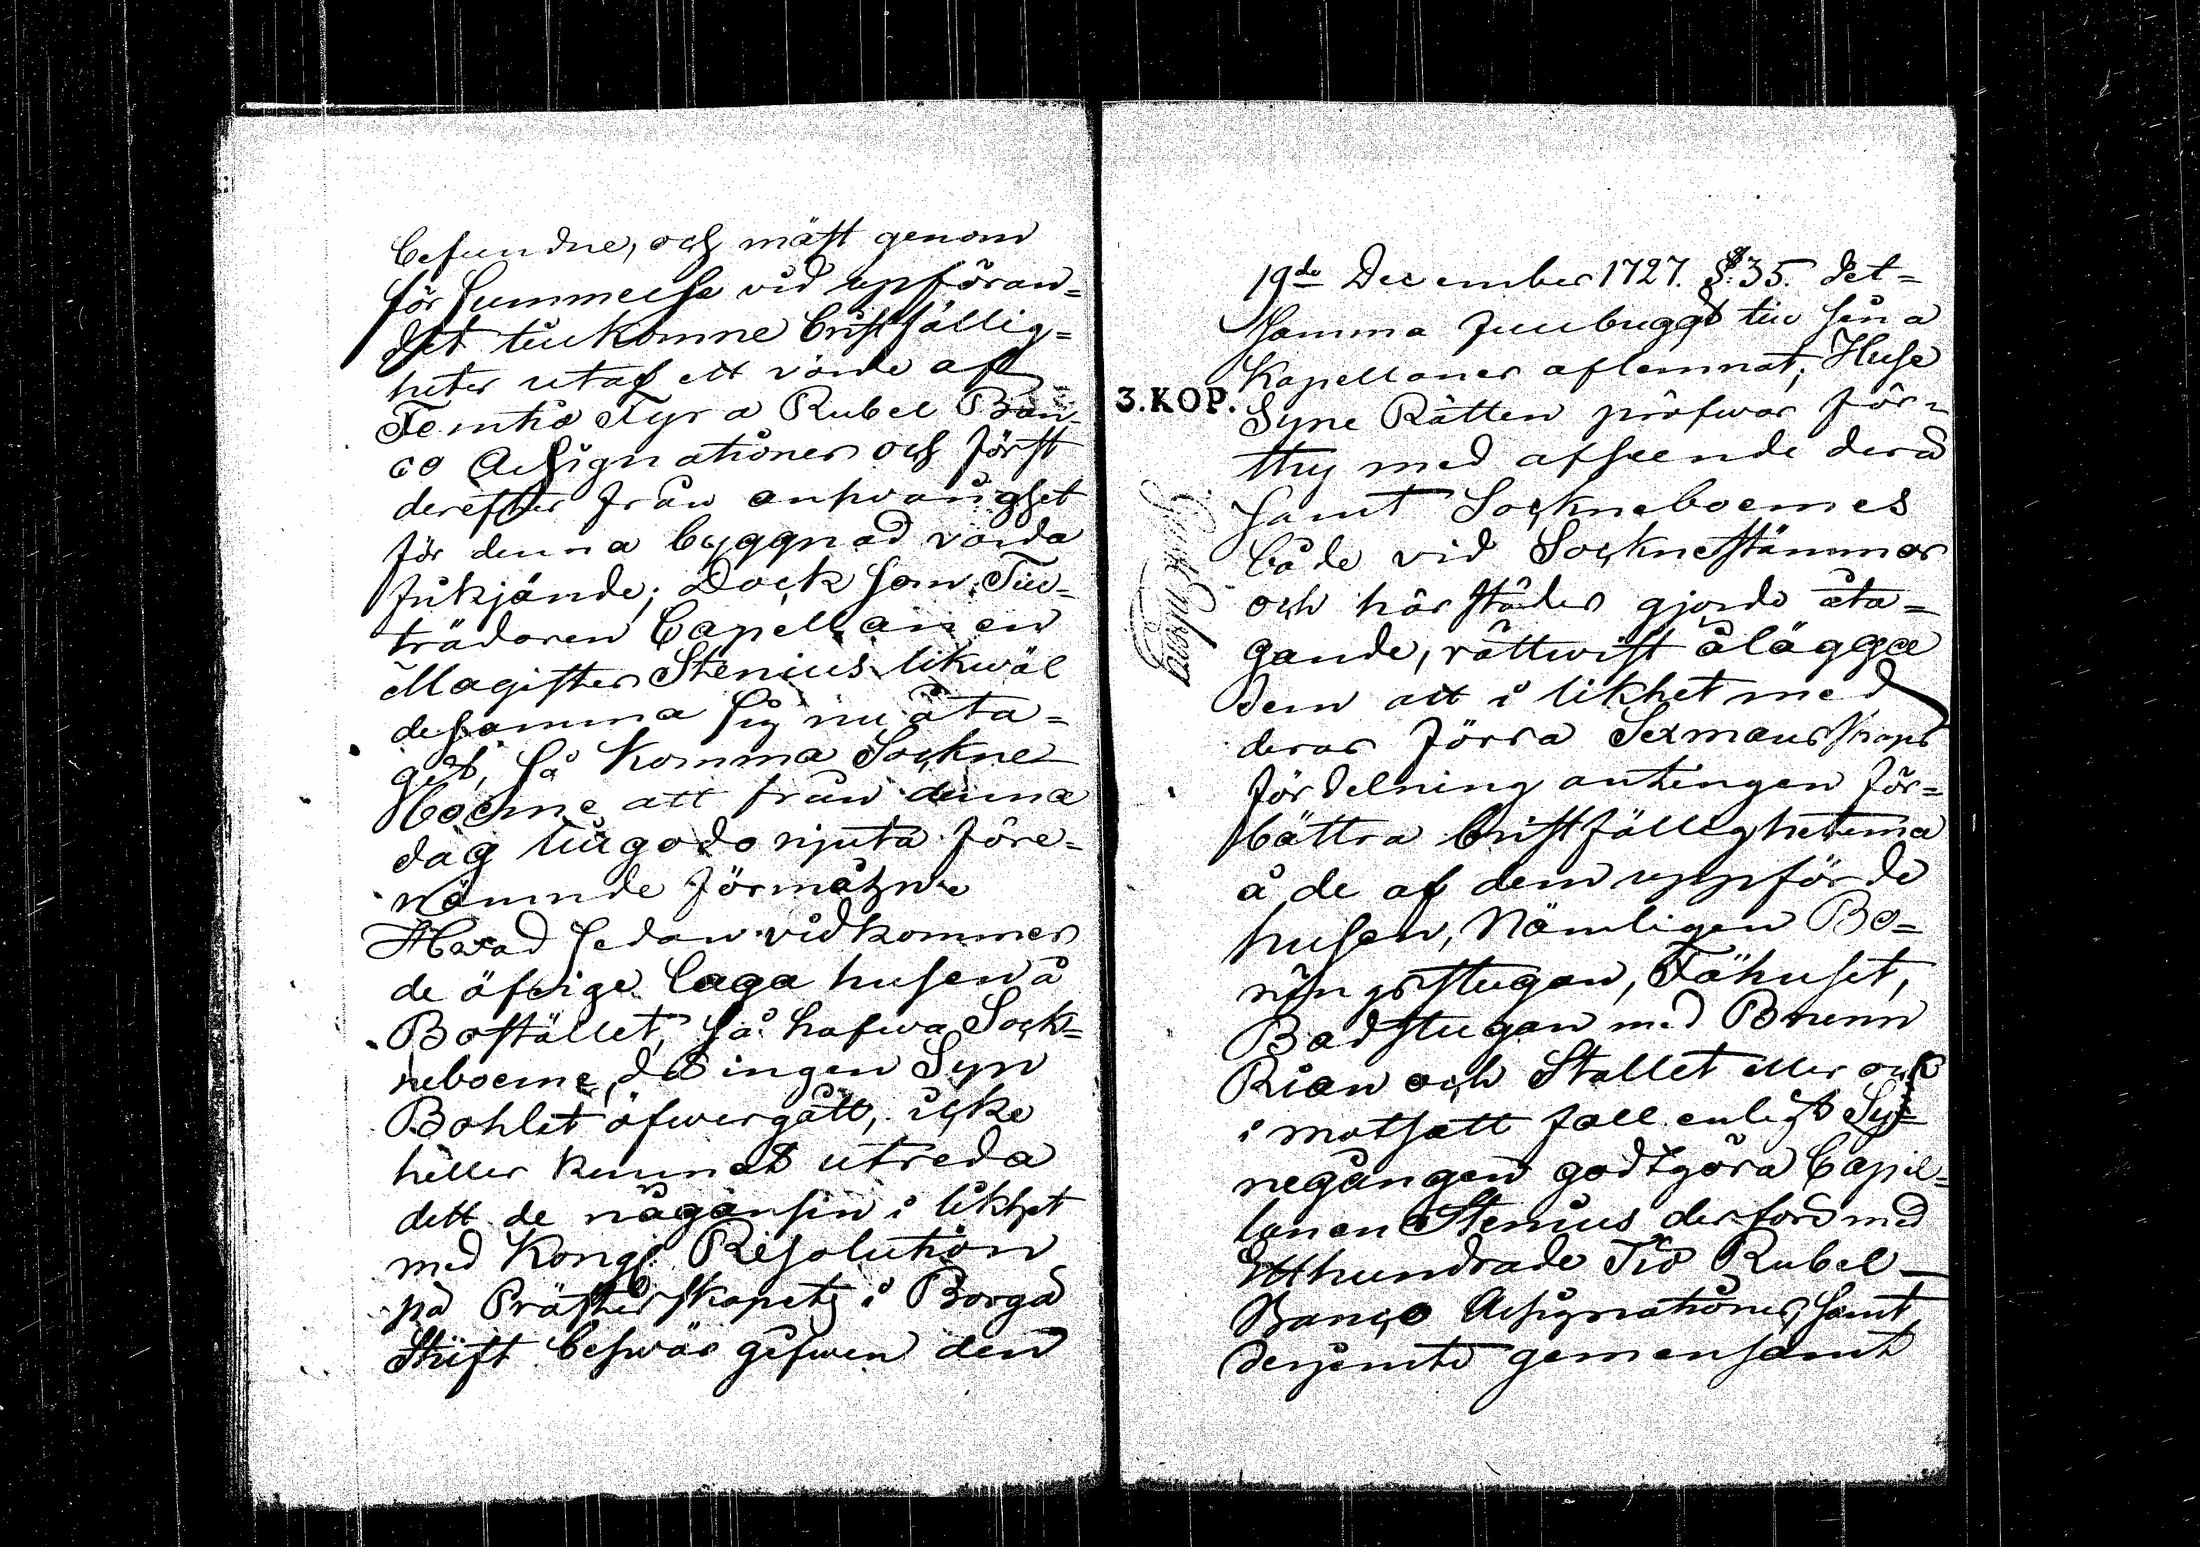 befundne, och mäst genom
försummelse vid upföran=
det tillkomne bristfällig=
heter utaf ett värde af
Femtio Fyra Rubel Ban=
co Assignationer och först
derefter från answarighet
för denna byggnad varda
frikjände; Dock som Till=
trädaren Capellanen
Magister Stenius likwäl
desamma sig nu åta=
git, så komma Sockne
boerne att från denna
dag tillgodo njuta före=
nämnde förmån
Hvad sedan vidkommer
de öfrige laga husen å
Bostället, så hafwa Sock=
neboerne, då ingen Syn
Bohlet öfwergått, icke
heller kunnat utreda
dett de någonsin i likhet
med Kongl. Resolution
på Prästerskapets i Borgå
Stift beswär gifwen den
19de December 1727. §. 35. det=
samma fullbyggt till sina
Kapellaner aflemnat; Huse
3. KOP.
Syne Rätten pröfwar för=
thy med afseende derå
samt Sockneboernes
både vid Sockneståmmor
och härstädes gjorde åta=
gande, rättwist ålägga
dem att i likhet med
deras förra Sexmanskaps
fördelning antingen för=
bättra bristfälligheterna
å de af dem uppförde
husen, Nämligen Bo=
ningsstugan, Fähuset,
Badstugan med Brunn
Rian och Stallet eller ock
i motsatt fall enligt Sy=
negången godtgöra Capel=
lanen Stenius derför med
Etthundrade Tio Rubel
Banco Assignationer, samt
derjemte gemensamt